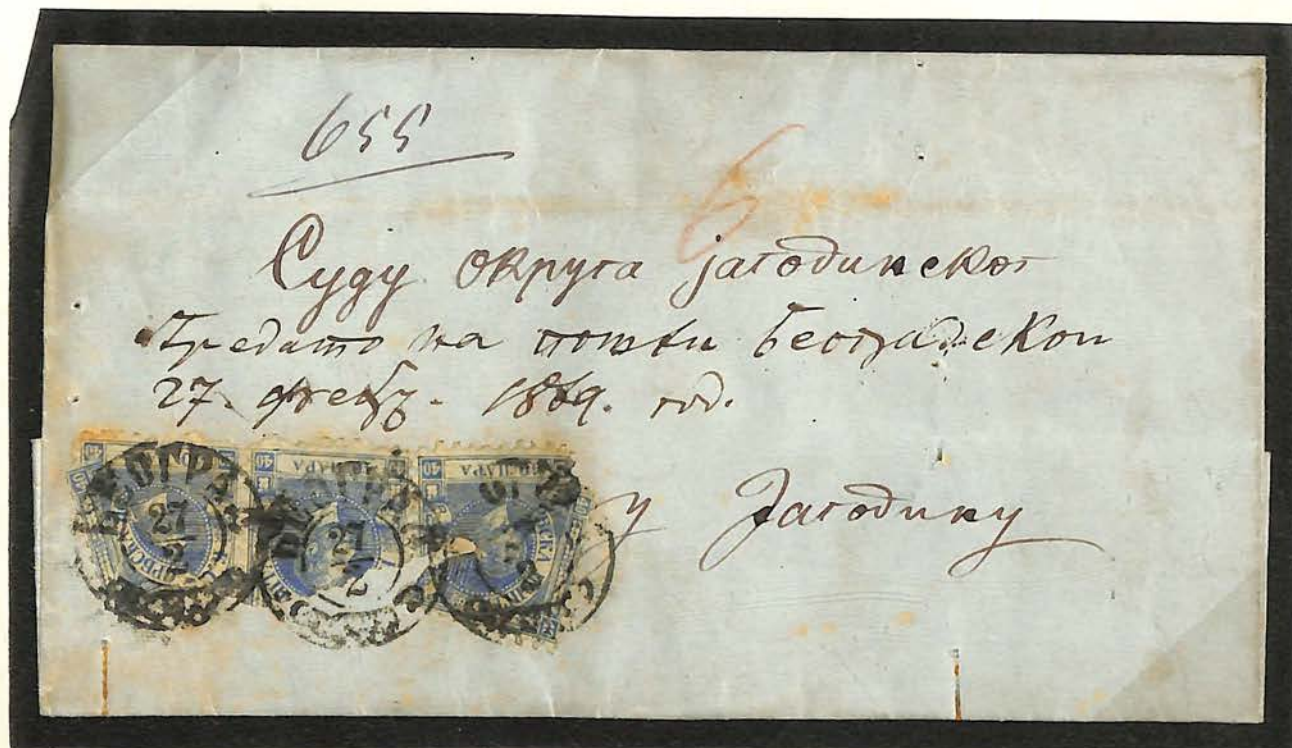 655
6
Суду округа јагодинског
Предато на пошти београдској
27. фебр. 1869. год.
у Јагодину
БЕОГРА
27
2
40 ПАРА 40
27
2
40 ПАРА